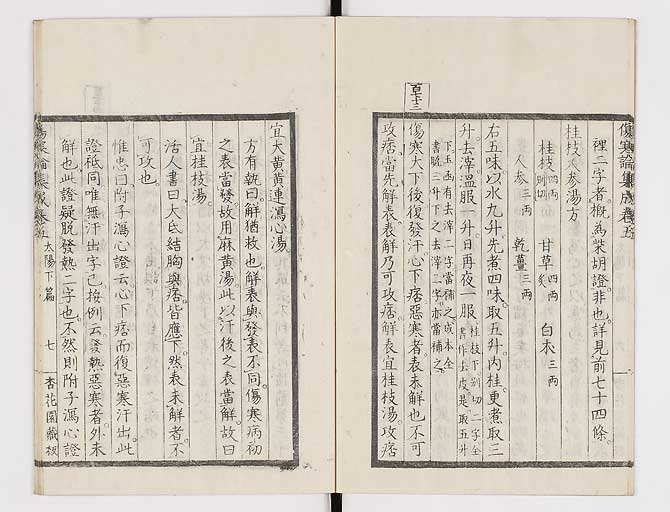 傷寒論集成卷五
裡二字者。概為柴胡證。非也。詳見前七十四條。
桂枝人參湯方
桂枝四兩別切 甘草四兩炙 白朮三兩
人參三兩 乾薑三兩
右五味。以水九升。先煮四味。取五升。內桂更煮。取三
升。去滓。溫服一升。日再夜一服。
下。玉函有去滓二字。當補之。成本全
書既三升下之去滓二字。亦當補之。
傷寒大下後。復發汗。心下痞。惡寒者。表未解也。不可
攻痞。當先解表。表解乃可攻痞。解表宜桂枝湯。攻痞
宜大黃黃連瀉心湯。
方有執曰。解猶救也。解表與發表不同。傷寒病初
之表當發。故用麻黃湯。此以汗後之表當解。故曰
宜桂枝湯。
活人書曰。大氐結胸與痞。皆應下。然表未解者。不
可攻也。
惟忠曰。附子瀉心證云。心下痞。而復惡寒汗出。此
證祗同。唯無汗出字已。按例云。發熱惡寒者。外未
解也。此證疑脫發熱二字也。不然則附子瀉心證
傷寒論集成卷五 太陽下篇 七 杏花園藏板